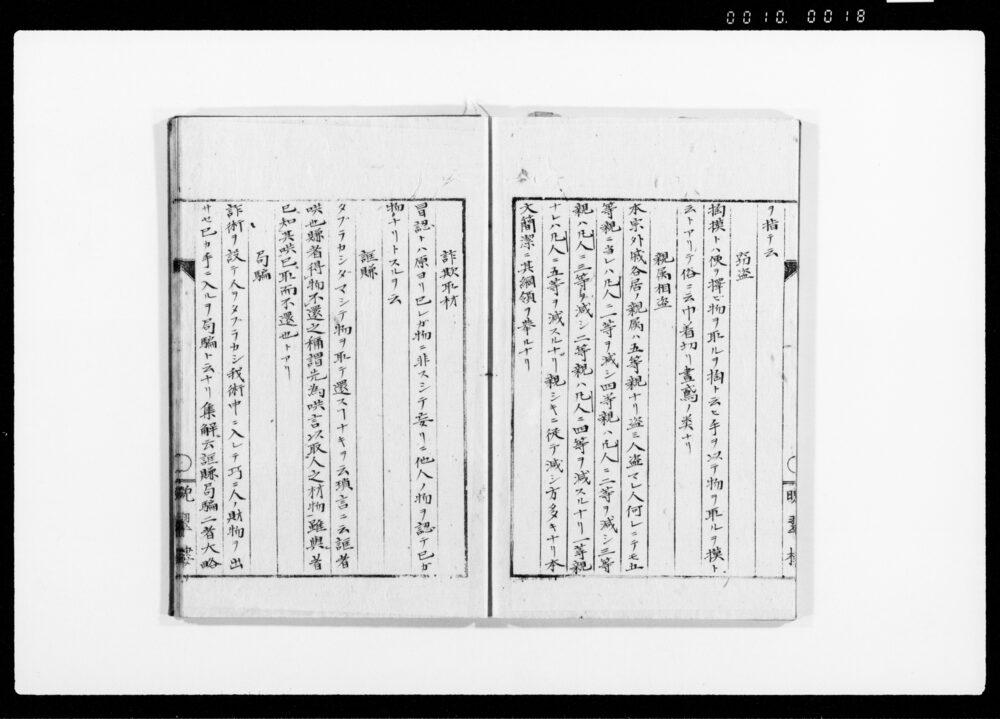 0010. 0018
ヲ指テ云
弱盗
掏摸トハ便ヲ擇ビ物ヲ取ルヲ掏ト云ヒ手ヲ以テ物ヲ取ルヲ摸ト
云トアリテ俗ニ云巾着切リ晝鳶ノ类ナリ
親属相盗
本宗外戚各居ノ親属ハ五等親ナリ盗ミ人盗マレ人何レニテモ五
等親ニ当レハ凡人ニ一等ヲ減シ四等親ハ凡人ニ二等ヲ減シ三等
親ハ凡人ニ三等ヲ減シ二等親ハ凡人ニ四等ヲ減スルナリ一等親
ナレハ凡人ニ五等ヲ減スルナリ親シキニ従テ減シ方多キナリ本
文簡潔ニ其綱領ヲ挙ルナリ
詐欺取材
冒認トハ原ヨリ已レガ物ニ非スシテ妄リニ他人ノ物ヲ認テ已ガ
物ナリトスルヲ云
誆賺
タブラカシダマシテ物ヲ取テ還スヿナキヲ云瑣言ニ云誆者
哄也賺者得物不還之稱謂先為哄言以取人之材物雖與者
已知其哄已取而不還也トアリ
局騙
詐術ヲ設テ人ヲタブラカシ我術中ニ入レテ巧ニ人ノ財物ヲ出
サセ已カ手ニ入ルヲ局騙ト云ナリ集解云誆賺局騙二者大略